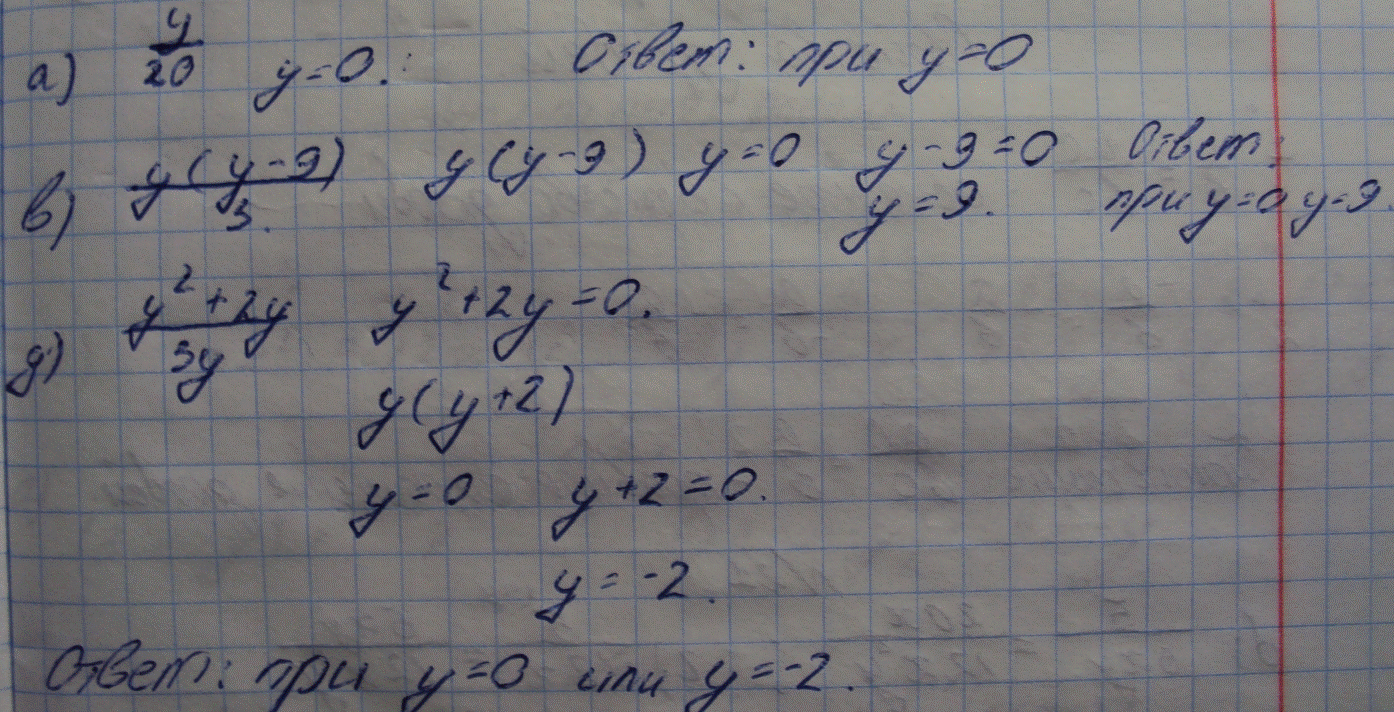 а) y/20 y=0. Ответ: при y=0
в) y(y-9)/3. y(y-9) y=0 y-9=0 Ответ:
y=9. при y=0 y=9.
д) y²+2y/3y y²+2y=0.
y(y+2)
y=0 y+2=0.
y=-2.
Ответ: при y=0 или y=-2.